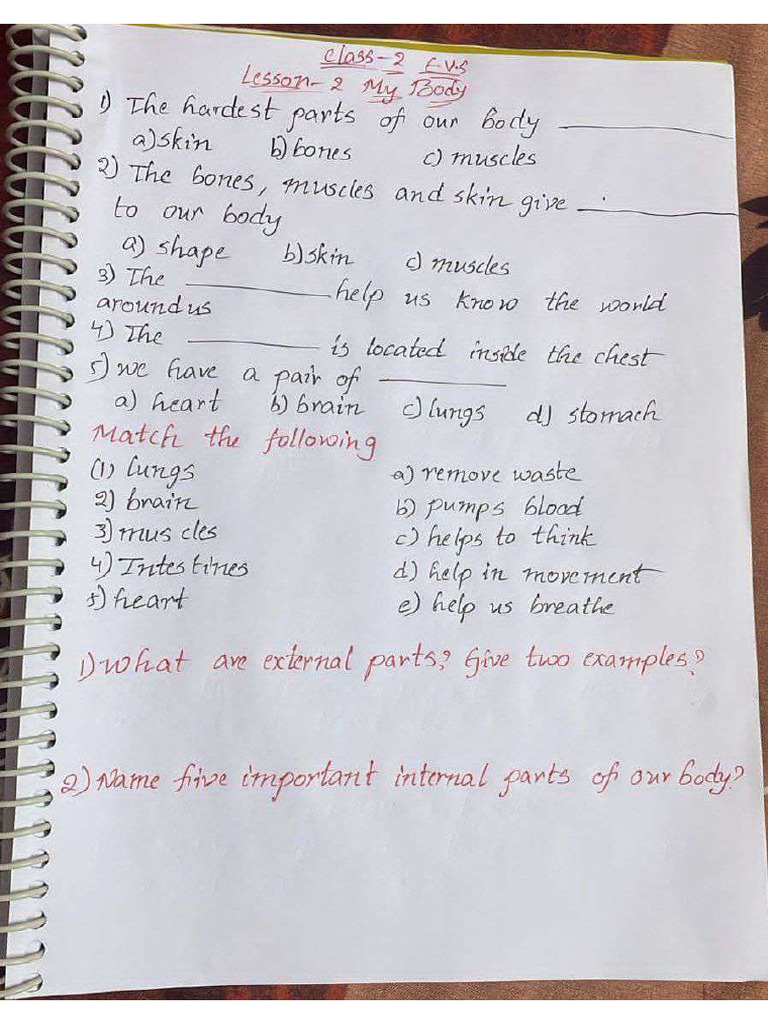 Class-2 E.V.S
Lesson-2 My Body
1) The hardest parts of our body ________
a) skin b) bones c) muscles
2) The bones, muscles and skin give ________
to our body
a) shape b) skin c) muscles
3) The ________ help us know the world
around us
4) The ________ is located inside the chest
5) we have a pair of ________
a) heart b) brain c) lungs d) stomach
Match the following
(1) lungs a) remove waste
2) brain b) pumps blood
3) muscles c) helps to think
4) Intestines d) help in movement
5) heart e) help us breathe
1) What are external parts? Give two examples?
2) Name five important internal parts of our body?